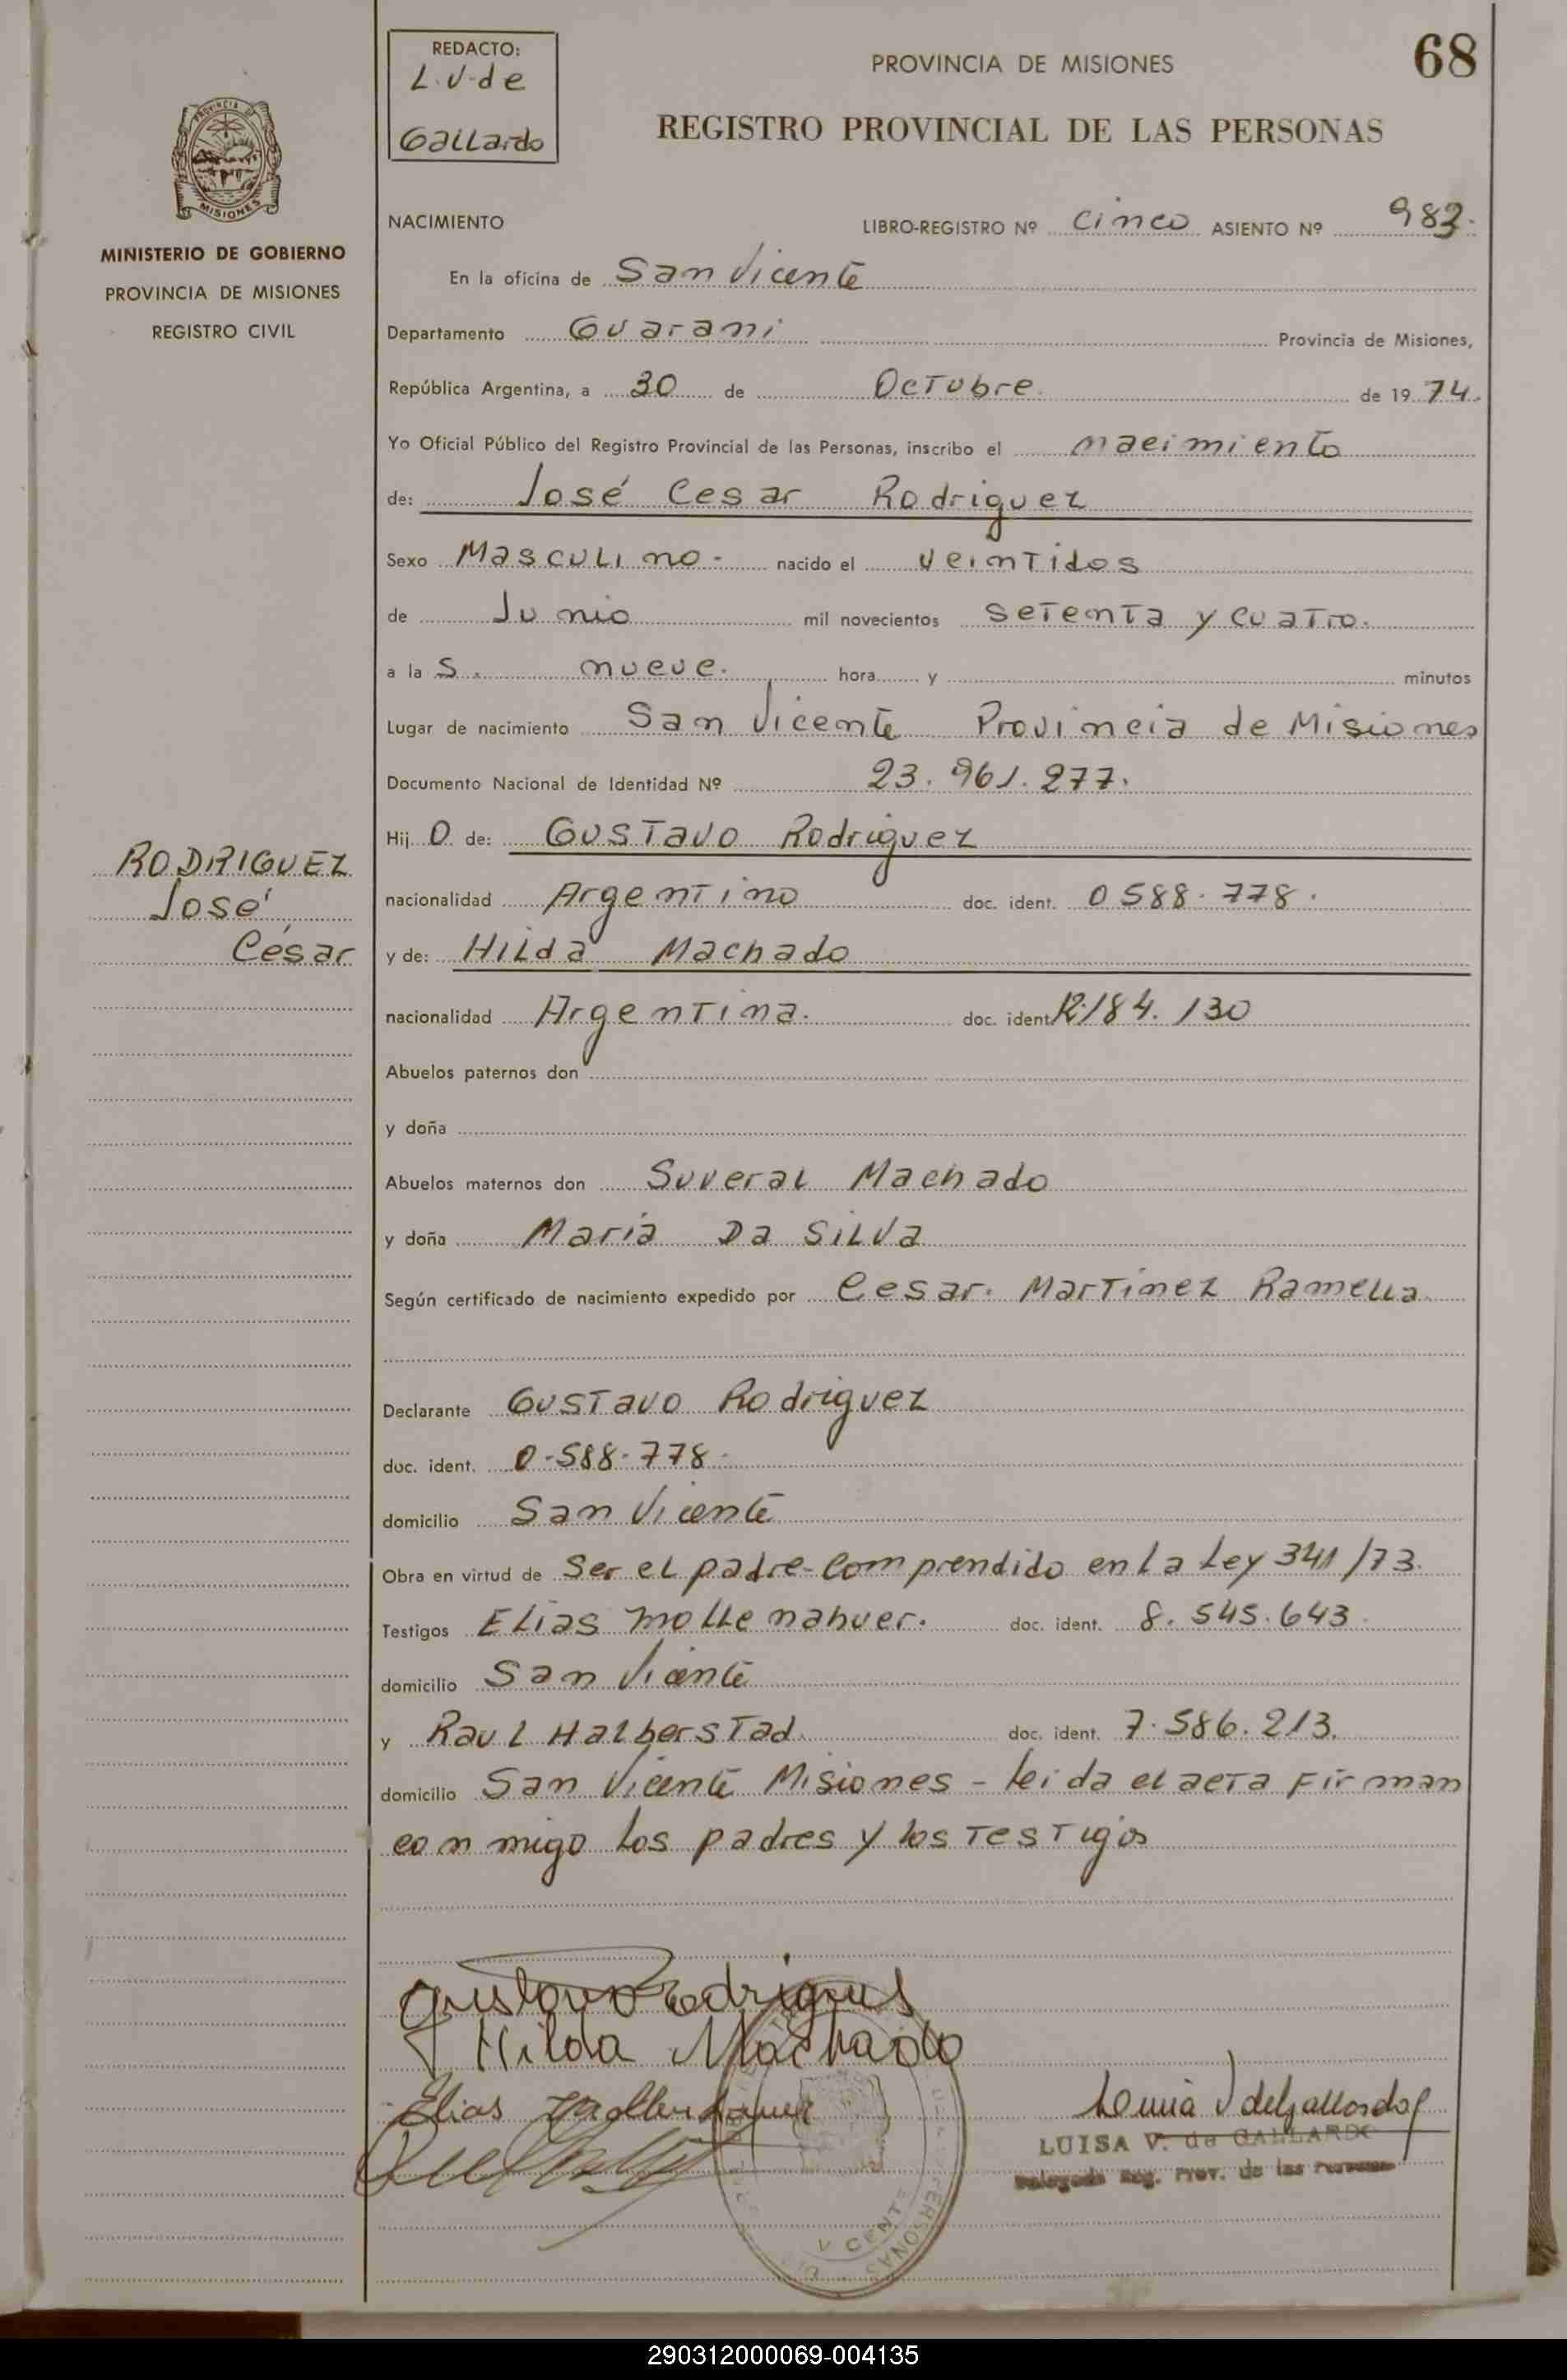 REDACTO:
L.V. de
Gallardo
PROVINCIA DE MISIONES
68
REGISTRO PROVINCIAL DE LAS PERSONAS
PROVINCIA DE
MISIONES
MINISTERIO DE GOBIERNO
PROVINCIA DE MISIONES
REGISTRO CIVIL
NACIMIENTO LIBRO-REGISTRO Nº cinco ASIENTO Nº 983.
En la oficina de San Vicente
Departamento Guarani Provincia de Misiones,
República Argentina, a 30 de Octubre de 1974.
Yo Oficial Público del Registro Provincial de las Personas, inscribo el nacimiento
de: José Cesar Rodriguez
Sexo Masculino- nacido el veintidos
de Junio mil novecientos setenta y cuatro.
a la s. nueve. hora y minutos
Lugar de nacimiento San Vicente Provincia de Misiones
Documento Nacional de Identidad Nº 23.961.277.
Hij o de: Gustavo Rodriguez
RODRIGUEZ
José
César
nacionalidad Argentino doc. ident. 0588.778.
y de: Hilda Machado
nacionalidad Argentina. doc. ident. 184.130
Abuelos paternos don
y doña
Abuelos maternos don Suveral Machado
y doña Maria Da Silva
Según certificado de nacimiento expedido por Cesar. Martinez Ramella.
Declarante Gustavo Rodriguez
doc. ident. 0-588-778-
domicilio San Vicente
Obra en virtud de Ser el padre-Comprendido en la Ley 341/73.
Testigos Elias Mollenahuer. doc. ident. 8.545.643.
domicilio San Vicente
y Raul Halberstad. doc. ident. 7.586.213.
domicilio San Vicente Misiones - leida el acta Firman
conmigo los padres y los Testigos
Gustavo Rodrigues
Hilda Machado
Elias
LUISA V. de GALLARDO
Delegada Reg. Prov. de las Personas
290312000069-004135